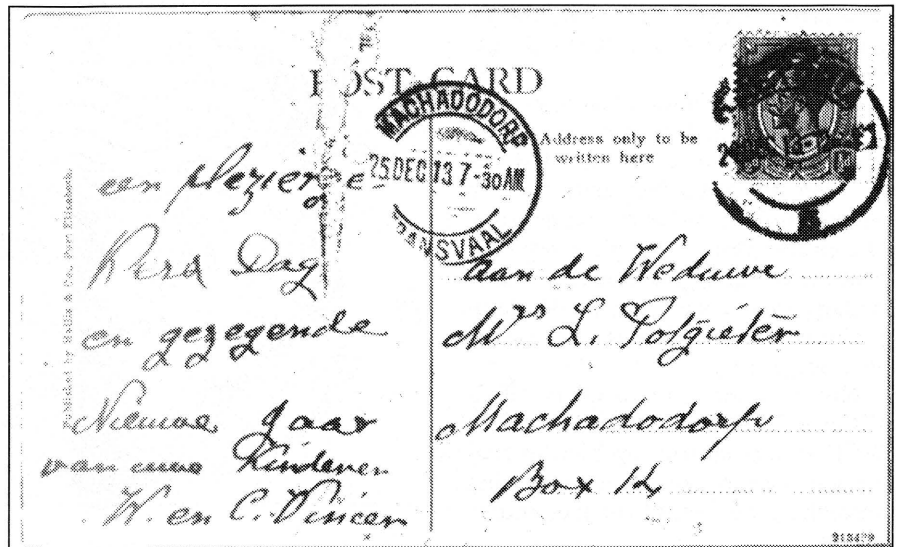 POST CARD
MACHADODORP
25 DEC 13 7-30 AM
TRANSVAAL
Address only to be
written here
Published by Hallis & Co., Port Elizabeth.
een plezierge
Kers Dag
en gezegende
Nieuwe Jaar
van uwe Kinderen
W. en C. Vincer
aan de Weduwe
Mrs L. Potgieter
Machadodorp
Box 14